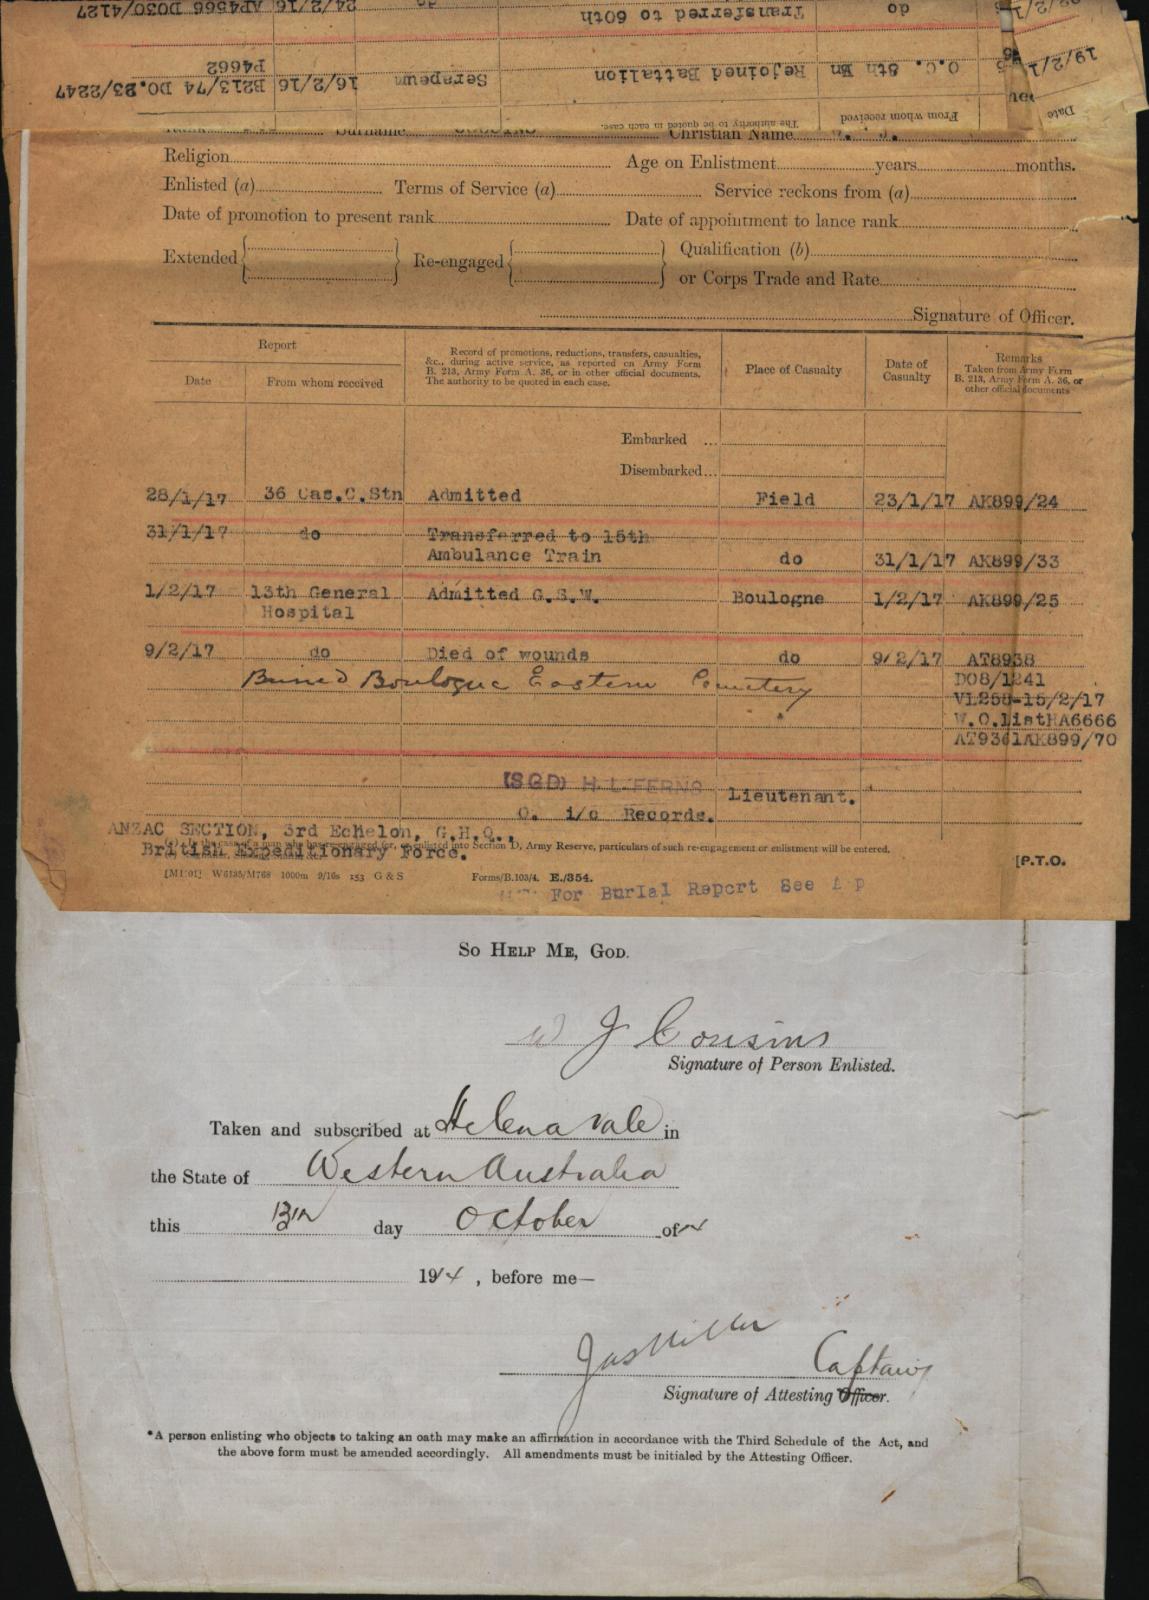 24/2/16 AP4566 DO30/4127
do Transferred to 60th do
19/2/1 O.C. 8th Bn Rejoined Battalion Serapeum 16/2/16 B213/74 DO.23/2247
P4662
Date From whom received The authority to be quoted in each case.
Surname Christian Name
Religion Age on Enlistment years months.
Enlisted (a) Terms of Service (a) Service reckons from (a)
Date of promotion to present rank Date of appointment to lance rank
Extended Re-engaged Qualification (b)
or Corps Trade and Rate
Signature of Officer.
Report
Date From whom received
Record of promotions, reductions, transfers, casualties,
&c., during active service, as reported on Army Form
B. 213, Army Form A. 36, or in other official documents.
The authority to be quoted in each case.
Place of Casualty
Date of
Casualty
Remarks
Taken from Army Form
B. 213, Army Form A. 36, or
other official documents
Embarked ...
Disembarked...
28/1/17 36 Cas.C.Stn Admitted Field 23/1/17 AK899/24
31/1/17 do Transferred to 15th
Ambulance Train do 31/1/17 AK899/33
1/2/17 13th General Admitted G.S.W. Boulogne 1/2/17 AK899/25
Hospital
9/2/17 do Died of wounds do 9/2/17 AT8938
Buried Boulogne Eastern Cemetery DO8/1241
VL258-15/2/17
W.O.listHA6666
AT9361AK899/70
(SGD) H. L. FERNS Lieutenant.
O. i/c Records.
ANZAC SECTION, 3rd Echelon, G.H.Q.,
British Expeditionary Force.
enlisted into Section D, Army Reserve, particulars of such re-engagement or enlistment will be entered.
[P.T.O.
W6185/M768 1000m 9/16s 153 G & S Forms/B.103/4. E./354.
For Burial Report See
So Help Me, God.
W J Cousins
Signature of Person Enlisted.
Taken and subscribed at Helena Vale in
the State of Western Australia
this day October of
1914, before me—
Jas Miller Captain
Signature of Attesting Officer.
*A person enlisting who objects to taking an oath may make an affirmation in accordance with the Third Schedule of the Act, and
the above form must be amended accordingly. All amendments must be initialed by the Attesting Officer.